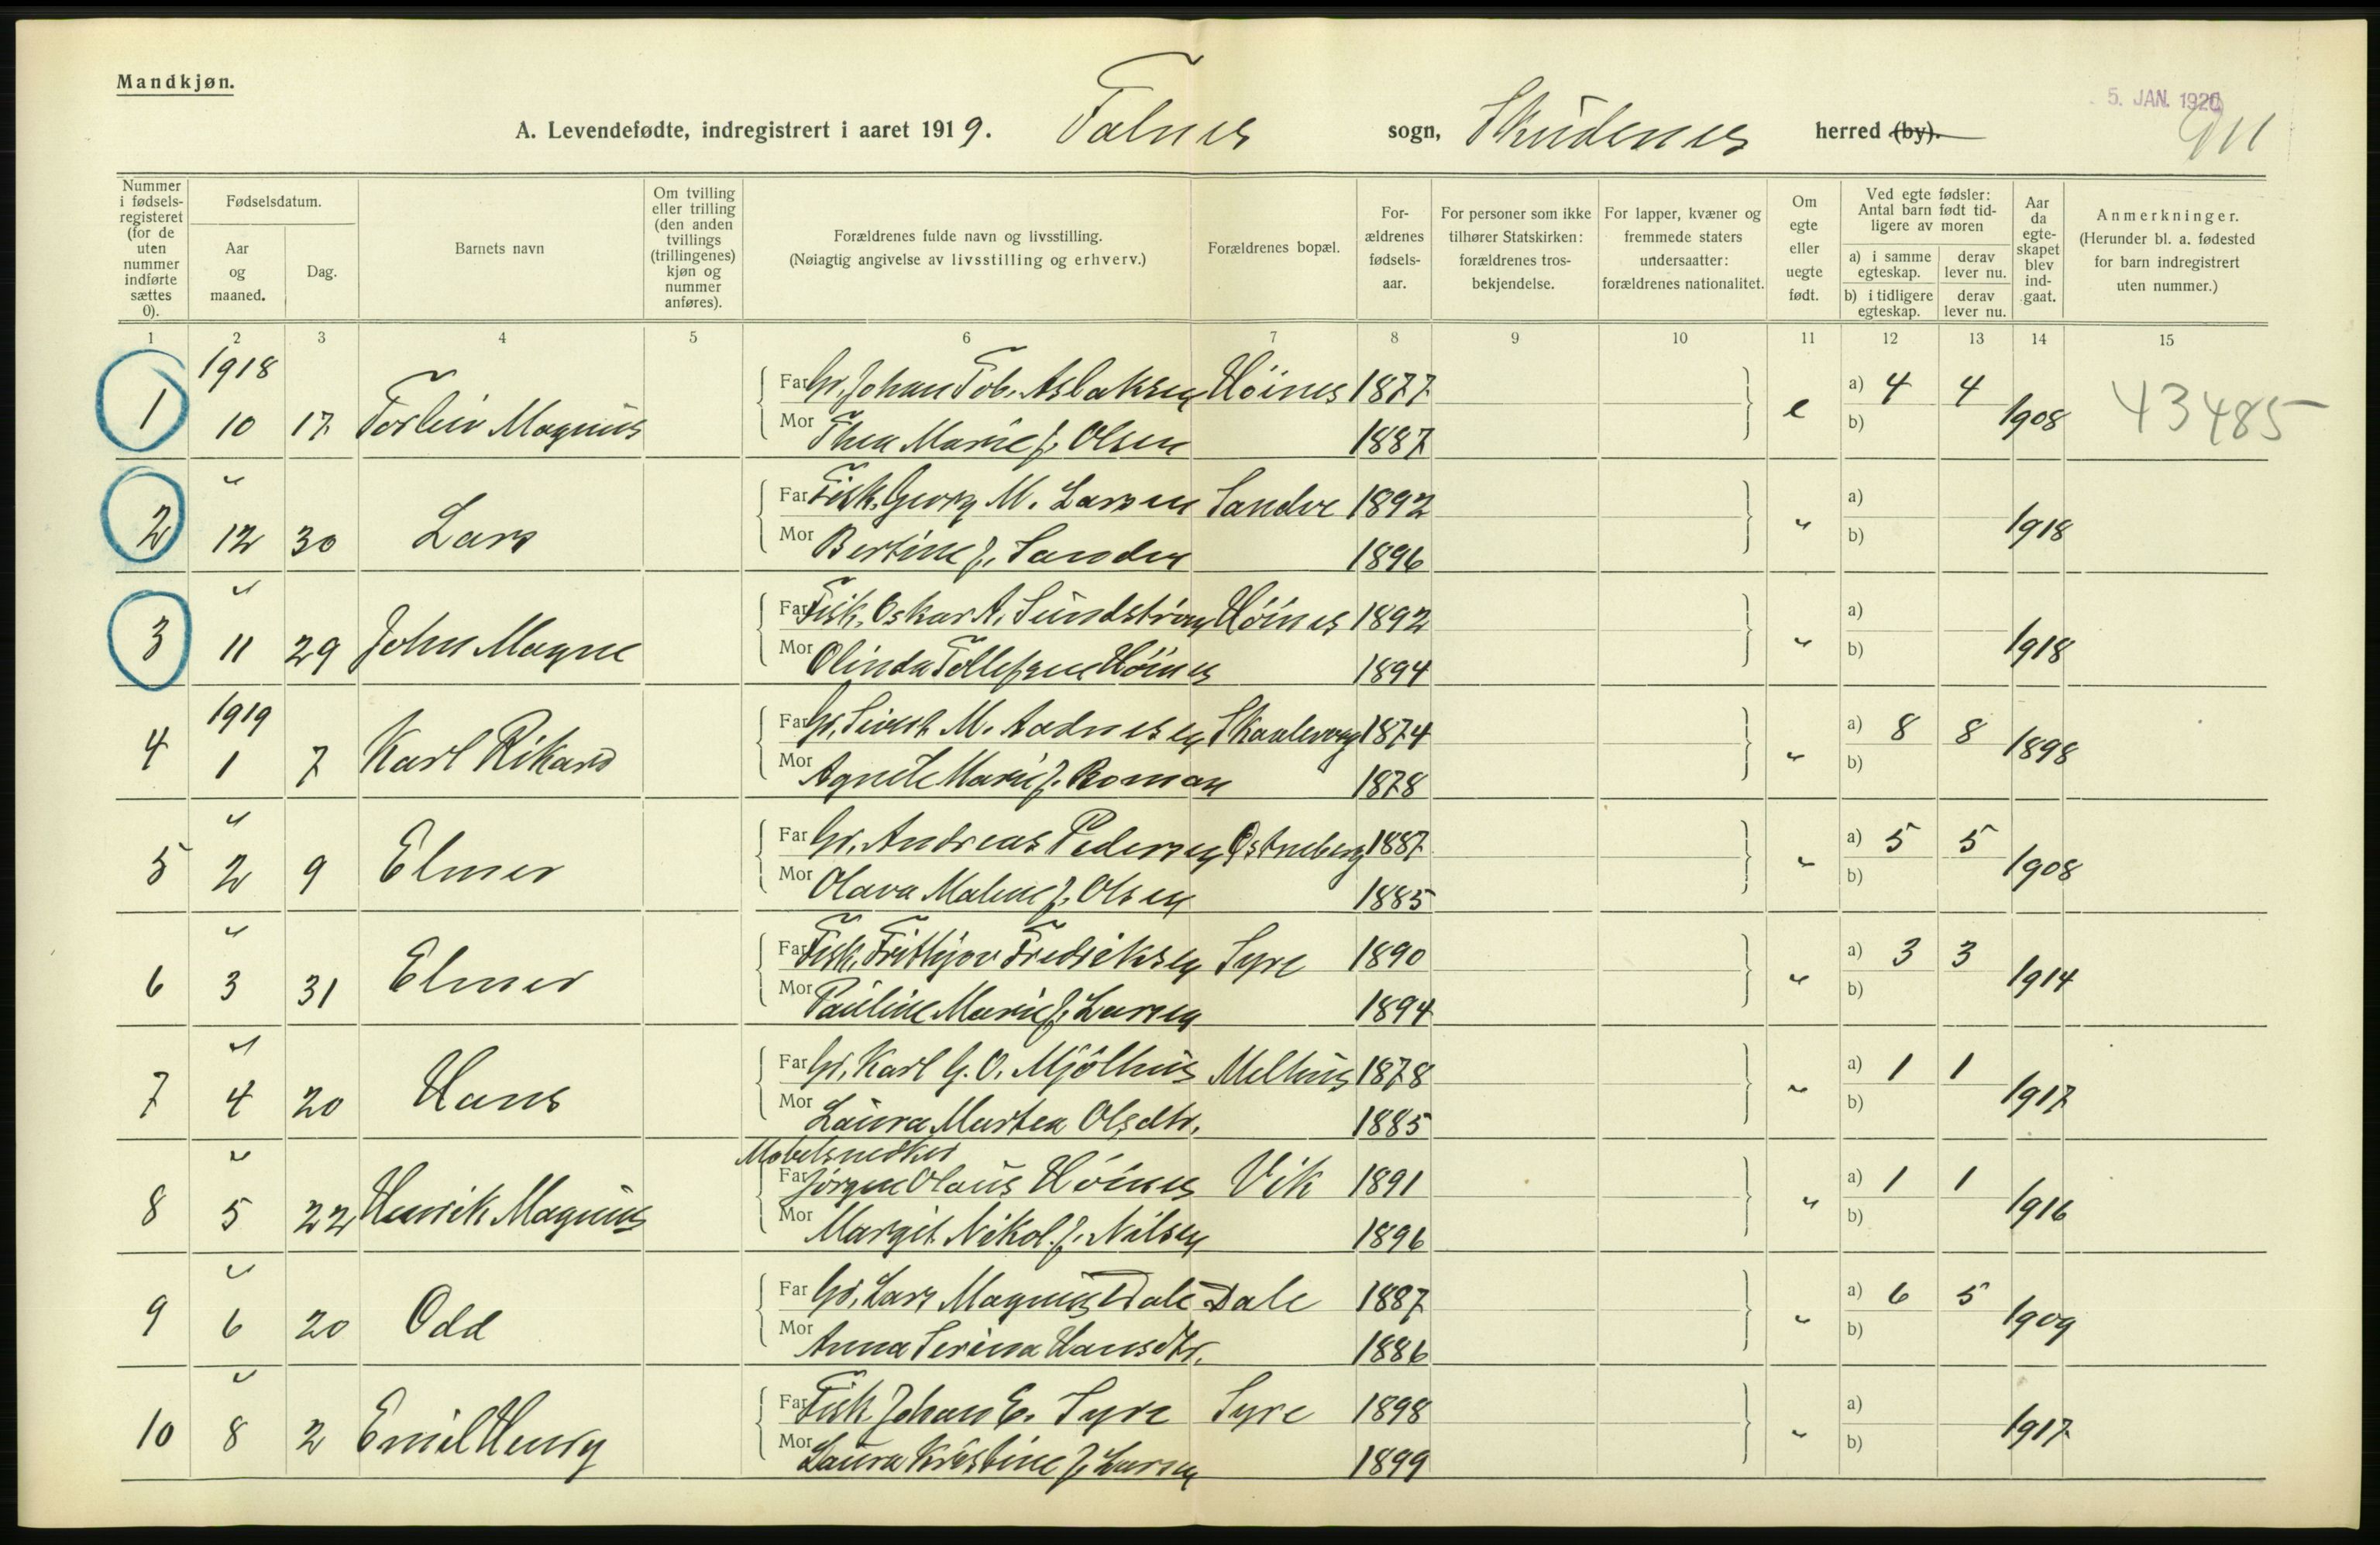 Mandkjøn.
5. JAN. 1920
A. Levendefødte, indregistrert i aaret 1919. Falnes sogn, Skudenes herred (by).
Nummer i fødselsregisteret (for de uten nummer indførte sættes 0).
Fødselsdatum.
Aar og maaned.
Dag.
Barnets navn
Om tvilling eller trilling (den anden tvillings (trillingenes) kjøn og nummer anføres).
Forældrenes fulde navn og livsstilling.
(Nøiagtig angivelse av livsstilling og erhverv.)
Forældrenes bopæl.
Forældrenes fødselsaar.
For personer som ikke tilhører Statskirken: forældrenes trosbekjendelse.
For lapper, kvæner og fremmede staters undersaatter: forældrenes nationalitet.
Om egte eller uegte født.
Ved egte fødsler: Antal barn født tidligere av moren
a) i samme egteskap. derav lever nu.
b) i tidligere egteskap. derav lever nu.
Aar da egteskapet blev indgaat.
Anmerkninger.
(Herunder bl. a. fødested for barn indregistrert uten nummer.)
1 2 3 4 5 6 7 8 9 10 11 12 13 14 15
1918
Far Gr. Johan Tob. Aslaksen Høines 1877 a) 4 4
1 10 17 Torleiv Magnus e 1908 43485
Mor Thea Marie f. Olsen 1887 b)
" Far Fisk. Georg M. Larsen Sandve 1892 a)
2 12 30 Lars " 1918
Mor Bertine f. Sandve 1896 b)
" Far Fisk. Oskar A. Sundstrøm Høines 1892 a)
3 11 29 John Magne " 1918
Mor Olinda Tollefsen Høines 1894 b)
1919
Far Gr. Sivert M. Aadnesen Skaalevaag 1874 a) 8 8
4 1 7 Karl Rikard " 1898
Mor Agnete Marie f. Roman 1878 b)
" Far Gr. Andreas Pedersen Østneberg 1887 a) 5 5
5 2 9 Elmer " 1908
Mor Olava Malene f. Olsen 1885 b)
" Far Fisk. Frithjov Fredriksen Syre 1890 a) 3 3
6 3 31 Elmer " 1914
Mor Pauline Marie f. Larsen 1894 b)
" Far Gr. Karl G. O. Mjølhus Melhus 1878 a) 1 1
7 4 20 Hans " 1917
Mor Laura Martea Olsdtr. 1885 b)
Møbelsnedker
" Far Jørgen Olaus Høines Vik 1891 a) 1 1
8 5 22 Henrik Magnus " 1916
Mor Margit Nikol. f. Nilsen 1896 b)
" Far Gr. Lars Magnus Dale Dale 1887 a) 6 5
9 6 20 Odd " 1909
Mor Anna Serina Hansdtr. 1886 b)
" Far Fisk Johan E. Syre Syre 1898 a)
10 8 2 Emil Henry " 1917
Mor Laura Kristine f. Larsen 1899 b)